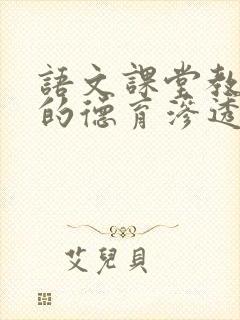 語文課堂教
的德育滲透
艾兒貝